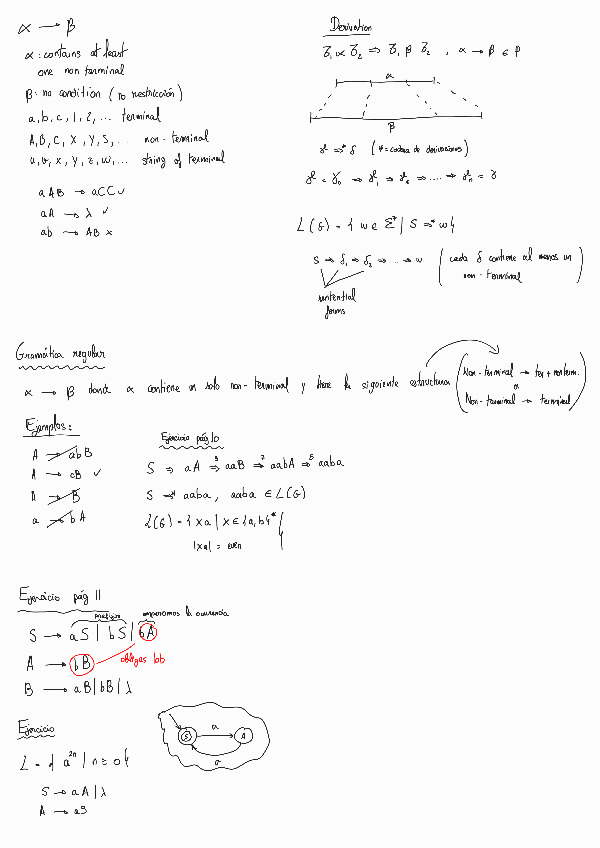 α → β
α: contains at least
one non terminal
β: no condition (no restricción)
a, b, c, 1, 2, ... terminal
A, B, C, X, Y, S, ... non-terminal
u, v, x, y, z, w, ... string of terminal
a A B → a C C ✓
a A → λ ✓
a b → A B ×
Derivation
γ₁ α γ₂ ⇒ γ₁ β γ₂ , α → β ∈ P
α
β
γ ⇒* δ (* = cadena de derivaciones)
γ = γ₀ ⇒ γ₁ ⇒ γ₂ ⇒ .... ⇒ γₙ = δ
L(G) = { w ∈ Σ* | S ⇒* w }
S ⇒ δ₁ ⇒ δ₂ ⇒ ... ⇒ w (cada δ contiene al menos un
non-terminal)
sentential
forms
Gramática regular
α → β donde α contiene un solo non-terminal y tiene la siguiente estructura
(Non-terminal → ter + nonterm.
o
Non-terminal → terminal)
Ejemplos:
A → abB
A → cB ✓
A → B
a → bA
Ejercicio pág 10
S ⇒ aA ⇒³ aaB ⇒² aabA ⇒⁵ aaba
S ⇒* aaba, aaba ∈ L(G)
L(G) = { xa | x ∈ {a, b}*
|xa| = even }
Ejercicio pág 11
prefijos
S → aS | bS | bA
A → bB
obligas bb
B → aB | bB | λ
Ejercicio
L = { a²ⁿ | n ≥ 0 }
S → aA | λ
A → aS
S
a
A
a